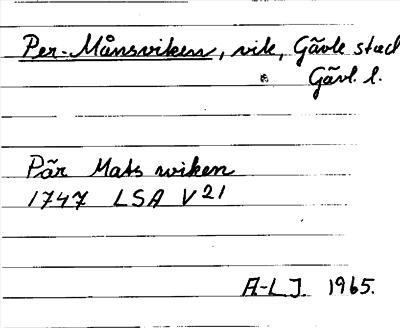 Per-Månsviken, vik, Gävle stad
Gävl. l.
Pär Mats wiken
1747 LSA V21
A-L J. 1965.